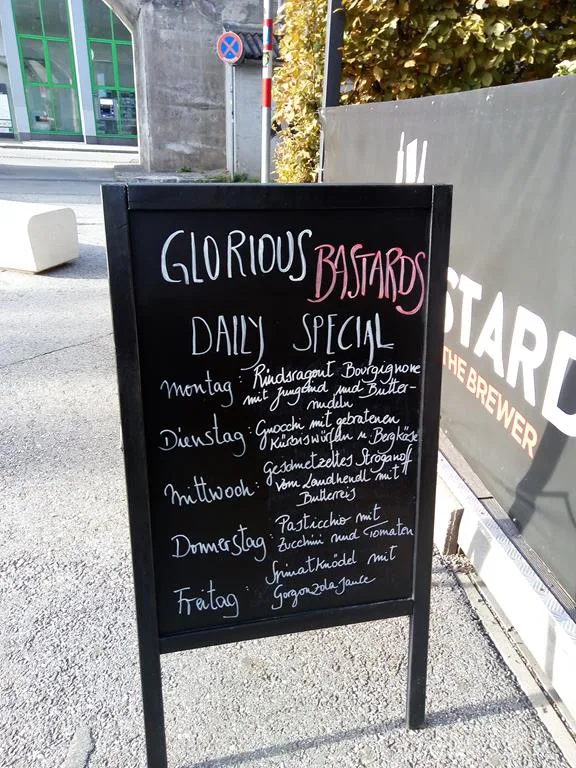 GLORIOUS BASTARDS
DAILY SPECIAL
Montag: Rindsragout Bourgignone
mit Jungzwiebel und Butter-
nudeln
Dienstag: Gnocchi mit gebratenen
Kürbiswürfeln u. Bergkäse
Mittwoch: Geschnetzeltes Stroganoff
vom Landhendl mit
Butterreis
Donnerstag: Pasticchio mit
Zucchini und Tomaten
Freitag: Spinatknödel mit
Gorgonzolasauce
STARD
THE BREWER